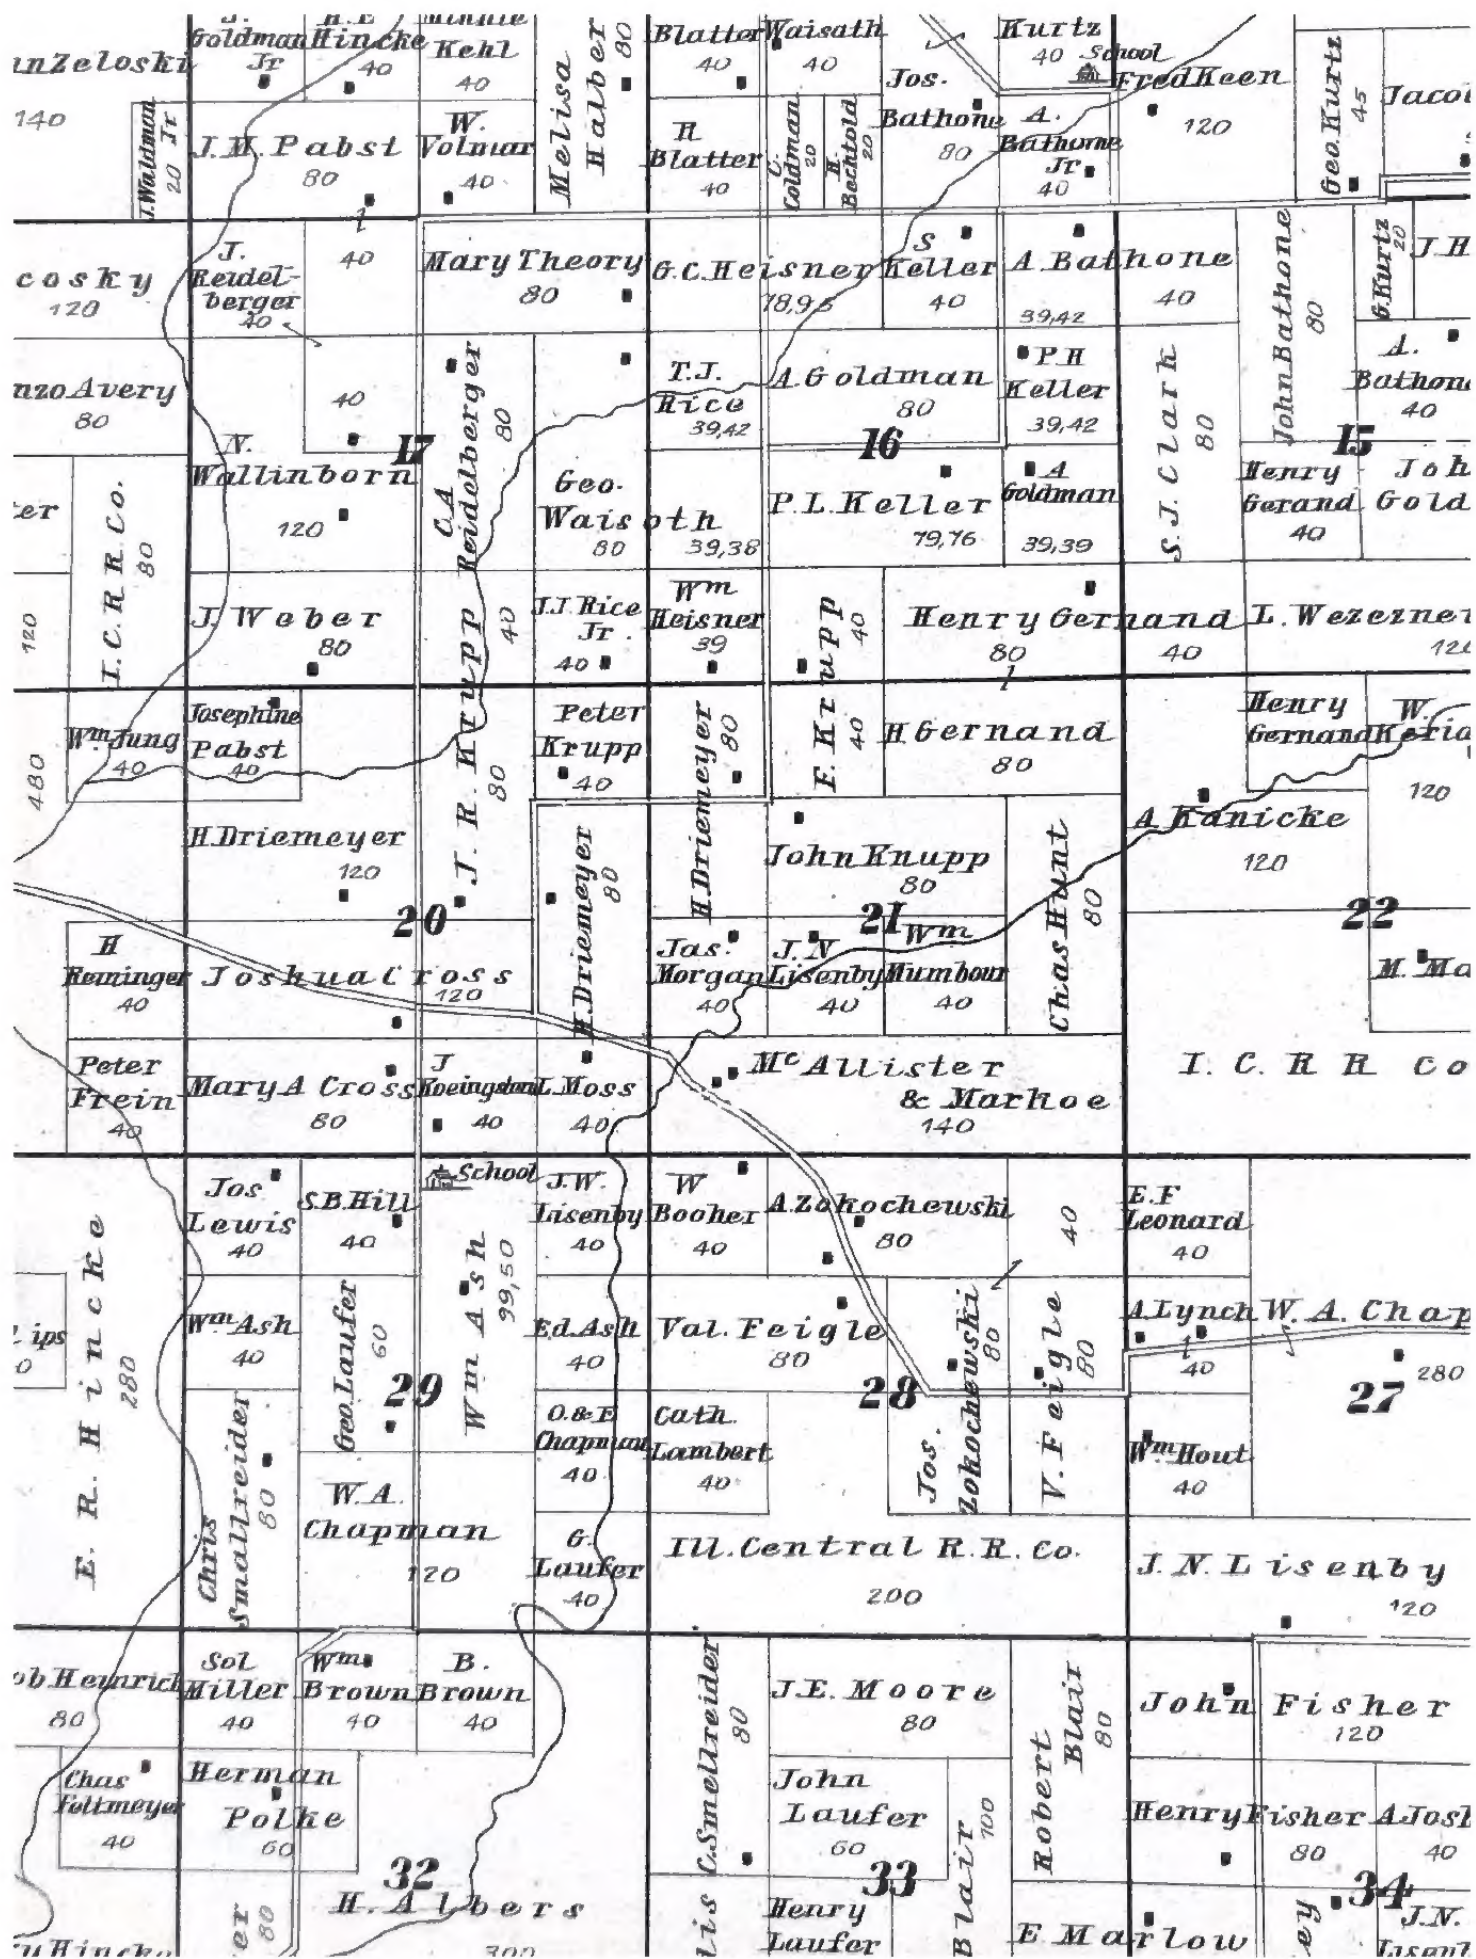 J.
Goldman
Jr
H.E
Hincke
40
Minnie
Kehl
40
Melisa
Halber
80
Blatter
40
Waisath
40
Jos.
Bathone
80
Kurtz
40
School
Fred Keen
120
Geo. Kurtz
45
Jacol
nnZeloski
140
J. Waldman
20 Jr
J.M. Pabst
80
W.
Volmar
40
R
Blatter
40
C.
Goldman
20
H.
Bechtold
20
A.
Bathome
Jr
40
cosky
120
J.
Reidel-
berger
40
40
Mary Theory
80
G.C. Heisner
78,95
S
Keller
40
A. Bathone
39,42
40
John Bathone
80
G.Kurtz
20
J.H
nzo Avery
80
40
C.A
Reidelberger
80
T.J.
Rice
39,42
A Goldman
80
P H
Keller
39,42
S.J. Clark
80
A.
Bathone
40
N.
Wallinborn
120
17
16
15
ter
I.C. R R Co.
80
Geo.
Waisoth
80
39,38
P.L. Keller
79,76
A
Goldman
39,39
Henry
Gerand
40
Joh
Gold
120
J. Weber
80
J. R. Krupp
40
80
J.J. Rice
Jr.
40
Wm
Heisner
39
F. Krupp
40
40
Henry Gernand
80
40
L. Wezezner
120
480
Wm Jung
40
Josephine
Pabst
40
Peter
Krupp
40
H. Driemeyer
80
H. Gernand
80
Henry
Gernand
W.
Keria
120
H. Driemeyer
120
H. Driemeyer
80
John Knupp
80
Chas Hunt
80
A Kanicke
120
20
21
22
H
Reininger
40
Joshua Cross
120
Jas.
Morgan
40
J. N
Lisenby
40
Wm
Mumbour
40
M. Ma
Peter
Frein
40
Mary A Cross
80
J
Koeingston
40
L. Moss
40
Mc Allister
& Markoe
140
I. C. R R Co
E. R. Hincke
280
Jos
Lewis
40
S.B. Hill
40
School
Wm Ash
99,50
J.W.
Lisenby
40
W
Booher
40
A. Zokochewski
80
40
E.F
Leonard
40
Lips
0
Wm Ash
40
Geo. Laufer
60
Ed. Ash
40
Val. Feigle
80
Jos.
Zokochewski
80
V. Feigle
80
A. Lynch
40
W. A. Chap
280
29
28
27
Chris
Smallreider
80
O. & E
Chapman
40
Cath.
Lambert
40
Wm Hout
40
W. A.
Chapman
120
G.
Laufer
40
Ill. Central R. R. Co.
200
J. N. Lisenby
120
ob Heinrich
80
Sol
Miller
40
Wm
Brown
40
B.
Brown
40
C. Smellreider
80
J. E. Moore
80
Robert
Blair
80
John Fisher
120
Chas
Feltmeyer
40
Herman
Polke
60
John
Laufer
60
Blair
100
Henry Fisher
80
A Josl
40
32
33
34
H. Albers
300
er
80
lis
Henry
Laufer
E Marlow
ey
J.N.
Lisenl
y Hincke